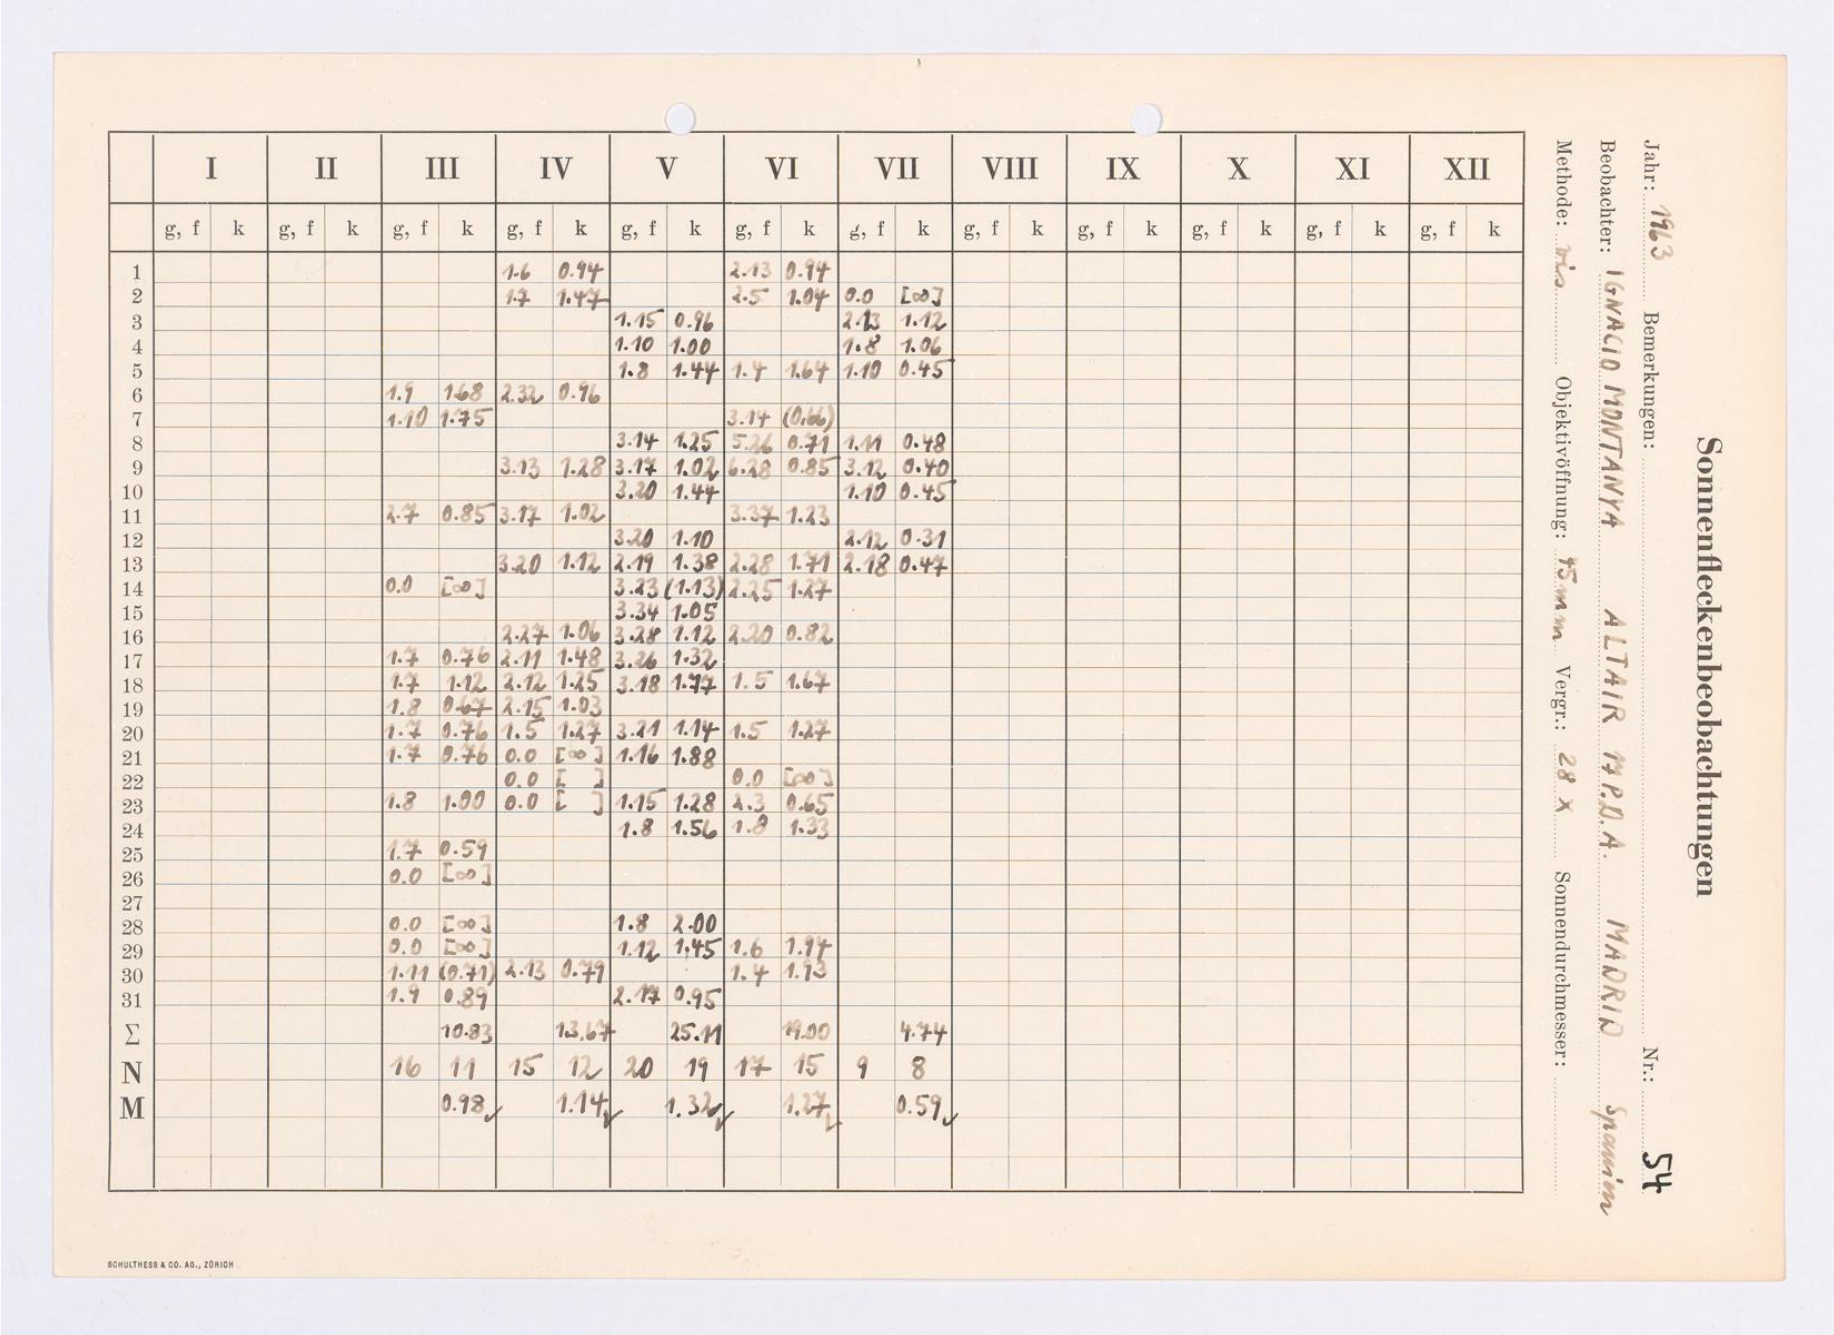 Sonnenfleckenbeobachtungen
Jahr: 1963 Bemerkungen: Nr.: 54
Beobachter: IGNACIO MONTANYA ALTAIR 17 P.D.A. MADRID Spanien
Methode: vis. Objektivöffnung: 75 mm Vergr.: 28 X Sonnendurchmesser:
I II III IV V VI VII VIII IX X XI XII
g, f k g, f k g, f k g, f k g, f k g, f k g, f k g, f k g, f k g, f k g, f k g, f k
1 1.6 0.94 2.13 0.94
2 1.7 1.47 2.5 1.04 0.0 [∞]
3 1.15 0.96 2.13 1.12
4 1.10 1.00 1.8 1.06
5 1.8 1.44 1.4 1.64 1.10 0.45
6 1.9 1.68 2.32 0.96
7 1.10 1.75 3.14 (0.66)
8 3.14 1.25 5.26 0.71 1.11 0.48
9 3.13 1.28 3.17 1.02 6.28 0.85 3.12 0.40
10 3.20 1.44 1.10 0.45
11 2.7 0.85 3.17 1.02 3.37 1.23
12 3.20 1.10 2.12 0.31
13 3.20 1.12 2.19 1.38 2.28 1.71 2.18 0.47
14 0.0 [∞] 3.23 (1.13) 2.25 1.27
15 3.34 1.05
16 2.27 1.06 3.28 1.12 2.20 0.82
17 1.7 0.76 2.11 1.48 3.26 1.32
18 1.7 1.12 2.12 1.25 3.18 1.77 1.5 1.67
19 1.8 0.67 2.15 1.03
20 1.7 0.76 1.5 1.27 3.21 1.14 1.5 1.27
21 1.7 0.76 0.0 [∞] 1.16 1.88
22 0.0 [ ] 0.0 [∞]
23 1.8 1.00 0.0 [ ] 1.15 1.28 2.3 0.65
24 1.8 1.56 1.8 1.33
25 1.7 0.59
26 0.0 [∞]
27
28 0.0 [∞] 1.8 2.00
29 0.0 [∞] 1.12 1.45 1.6 1.94
30 1.11 (0.71) 2.13 0.79 1.4 1.93
31 1.9 0.89 2.17 0.95
Σ 10.83 13.67 25.11 19.00 4.74
N 16 11 15 12 20 19 17 15 9 8
M 0.98 1.14 1.32 1.27 0.59
SCHULTHESS & CO. AG., ZÜRICH